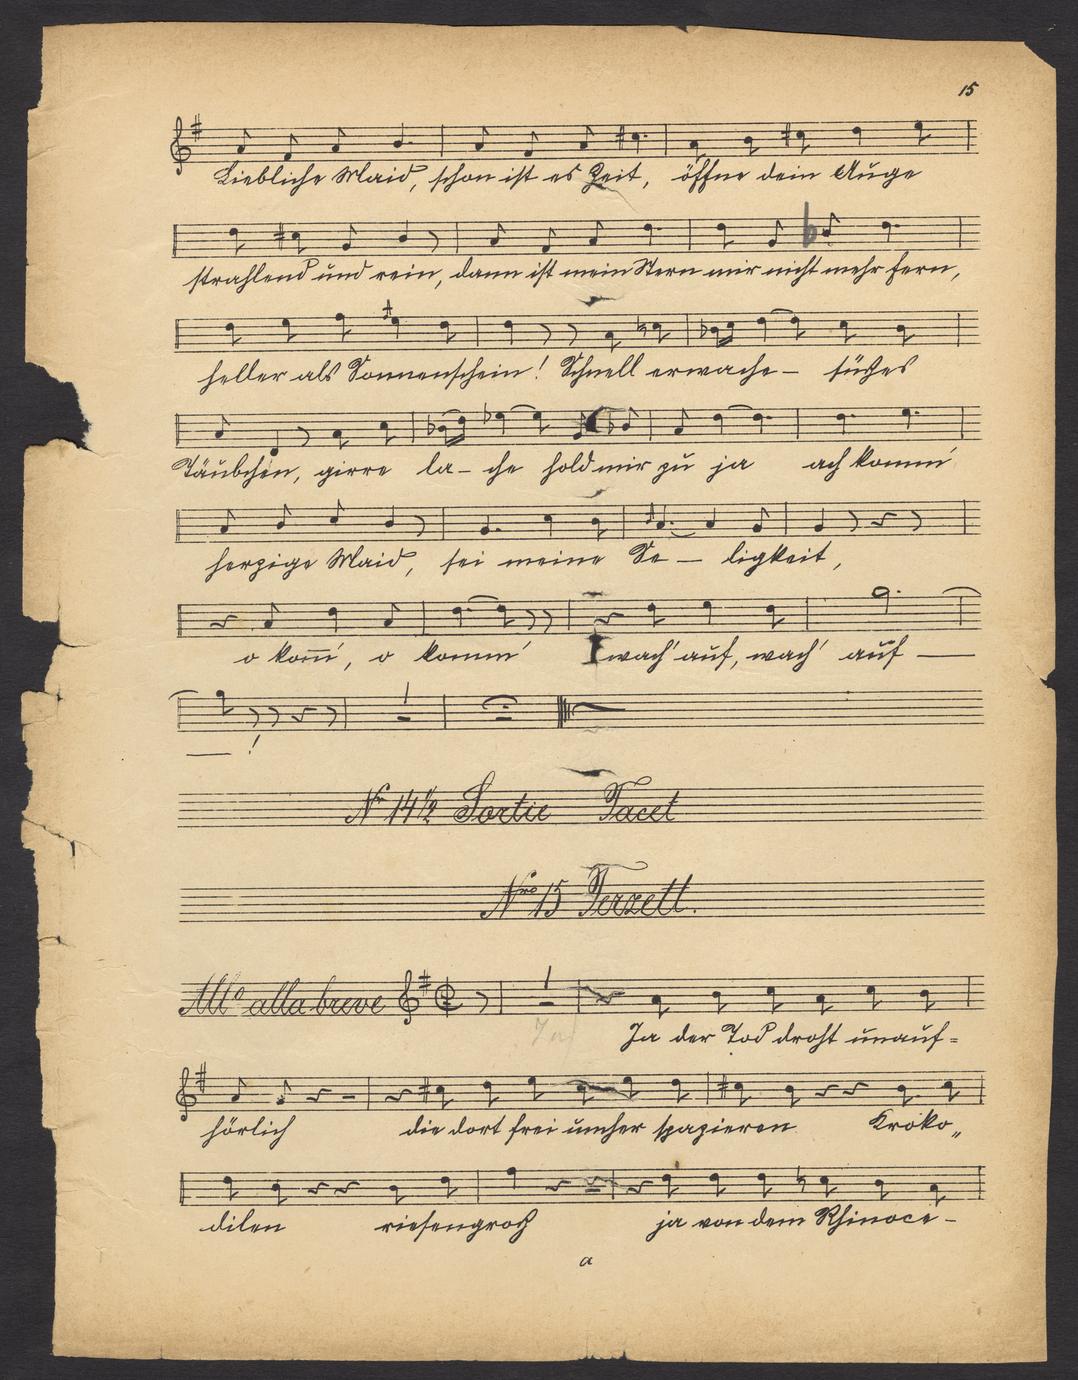 15
Liebliche Maid, schon ist es Zeit, öffne dein Auge
strahlend und rein, dann ist mein Stern mir nicht mehr fern,
heller als Sonnenschein! Schnell erwache – süßes
Täubchen, girre la – che hold mir zu ja ach komm'
herzige Maid, sei meine Se – ligkeit,
o kom̅', o komm' wach' auf, wach' auf —
— !
No 14½ Sortie Tacet
Nro 15 Terzett.
Allo alla breve
Ja der Tod droht unauf=
hörlich die dort frei umher spazieren Kroko„
dilen riesengroß ja von dem Rhinoce –
a